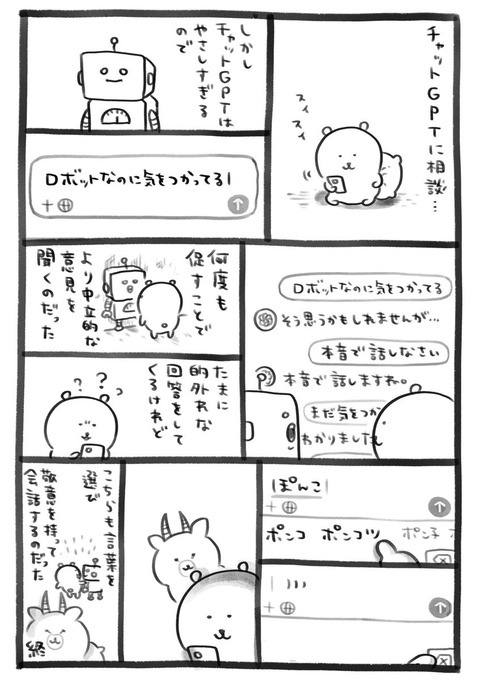 チャットGPTに相談…
スィ
スィ
スィ
しかし
チャットGPTは
やさしすぎる
ので
ロボットなのに気をつかってる
ロボットなのに気をつかってる
そう思うかもしれませんが…
本音で話しなさい
本音で話しますね。
まだ気をつか
わかりました
何度も
促すことで
より中立的な
意見を
聞くのだった
たまに
的外れな
回答をして
くるけれど
? ?
ぽんこ
ポンコ ポンコツ ポン子
こちらも言葉を
選び
敬意を持って
会話するのだった
終